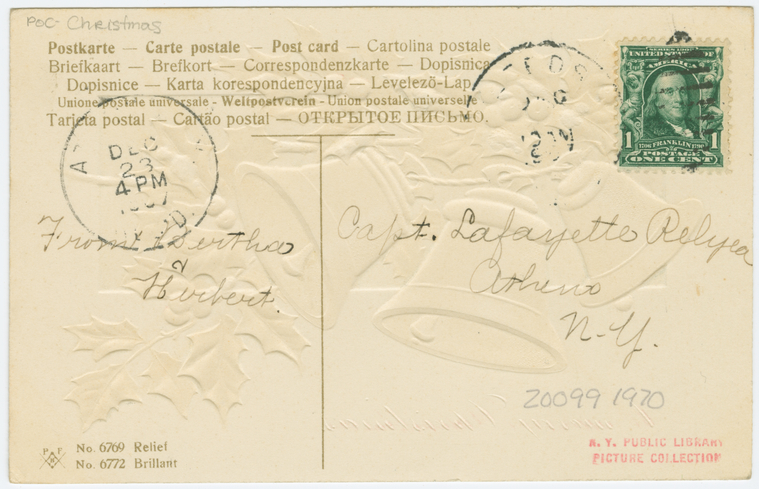 POC- Christmas
Postkarte — Carte postale — Post card — Cartolina postale
Briefkaart — Brefkort — Correspondenzkarte — Dopisnica
Dopisnice — Karta korespondencyjna — Levelező-Lap
Unione postale universale - Weltpostverein - Union postale universelle
Tarjeta postal — Cartão postal — ОТКРЫТОЕ ПИСЬМО.
DEC
23
4 PM
1907
LEEDS
SERIES 1902
UNITED STATES OF
AMERICA
1 1706 FRANKLIN 1790 1
POSTAGE
ONE CENT
From Bertha
Herbert.
Capt. Lafayette Relyea
Athens
N-Y.
20099 1970
No. 6769 Relief
No. 6772 Brillant
N. Y. PUBLIC LIBRARY
PICTURE COLLECTION